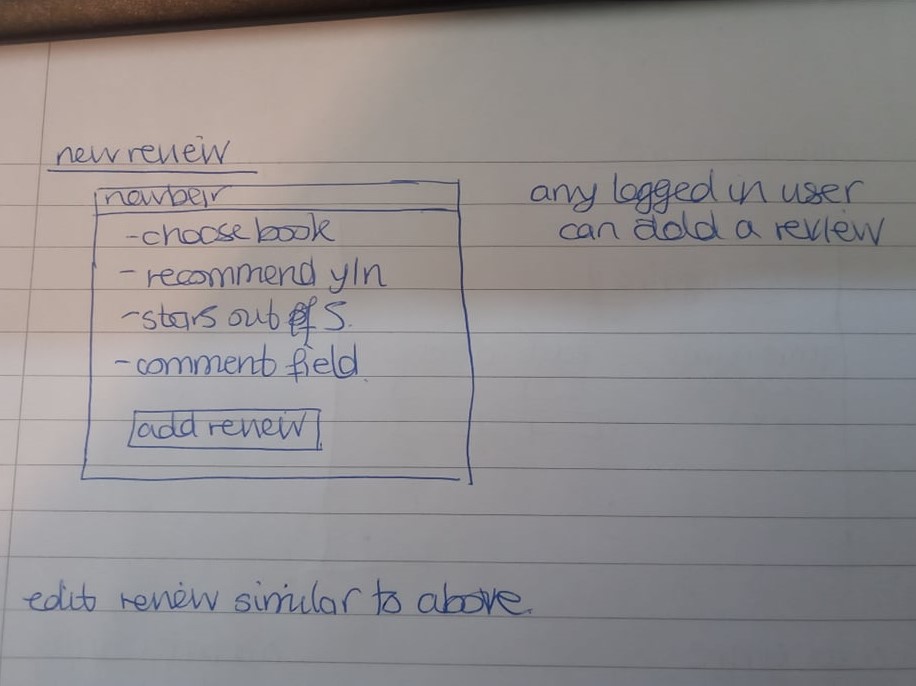 new review
navbar
-choose book
- recommend y/n
-stars out of 5.
-comment field.
add review
any logged in user
can add a review
edit review similar to above.